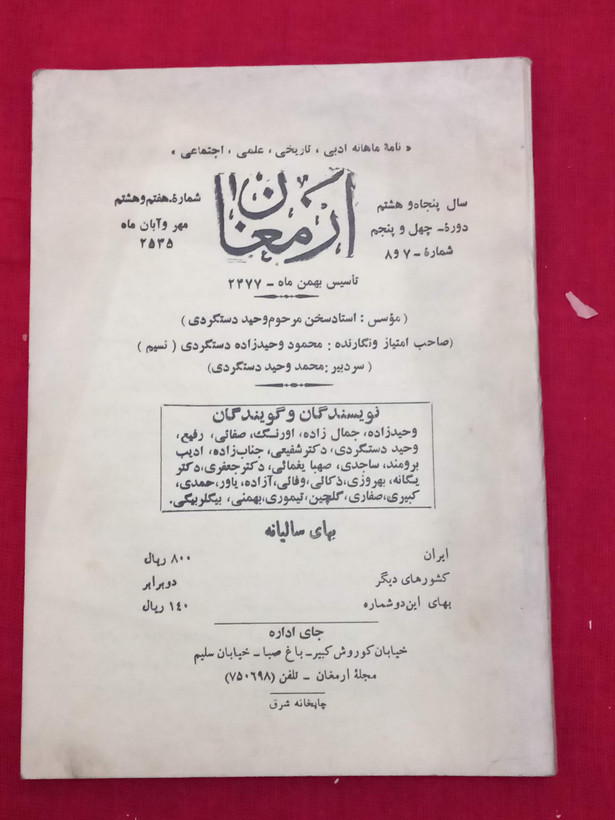 « نامهٔ ماهانه ادبی ، تاریخی ، علمی ، اجتماعی »
ارمغان
سال پنجاه و هشتم
دورهٔ - چهل و پنجم
شمارهٔ - ۷ و ۸
شمارهٔ . هفتم و هشتم
مهر و آبان ماه
۲۵۳۵
تأسیس بهمن ماه - ۲۴۷۷
( مؤسس : استاد سخن مرحوم وحید دستگردی )
(صاحب امتیاز و نگارنده : محمود وحیدزاده دستگردی ( نسیم )
( سردبیر : محمد وحید دستگردی)
نویسندگان و گویندگان
وحیدزاده، جمال زاده، اورنگ، صفائی، رفیع،
وحید دستگردی، دکتر شفیعی، جناب‌زاده، ادیب
برومند، ساجدی، صهبا یغمائی، دکتر جعفری، دکتر
یگانه، بهروزی، ذکائی، وفائی، آزاده، یاور، حمدی،
کبیری، صفاری، گلچین، تیموری، بهمنی، بیگلربیگی.
بهای سالیانه
ایران ۸۰۰ ریال
کشورهای دیگر دو برابر
بهای این دو شماره ۱۴۰ ریال
جای اداره
خیابان کوروش کبیر - باغ صبا - خیابان سلیم
مجلهٔ ارمغان - تلفن (۷۵۰۶۹۸)
چاپخانه شرق